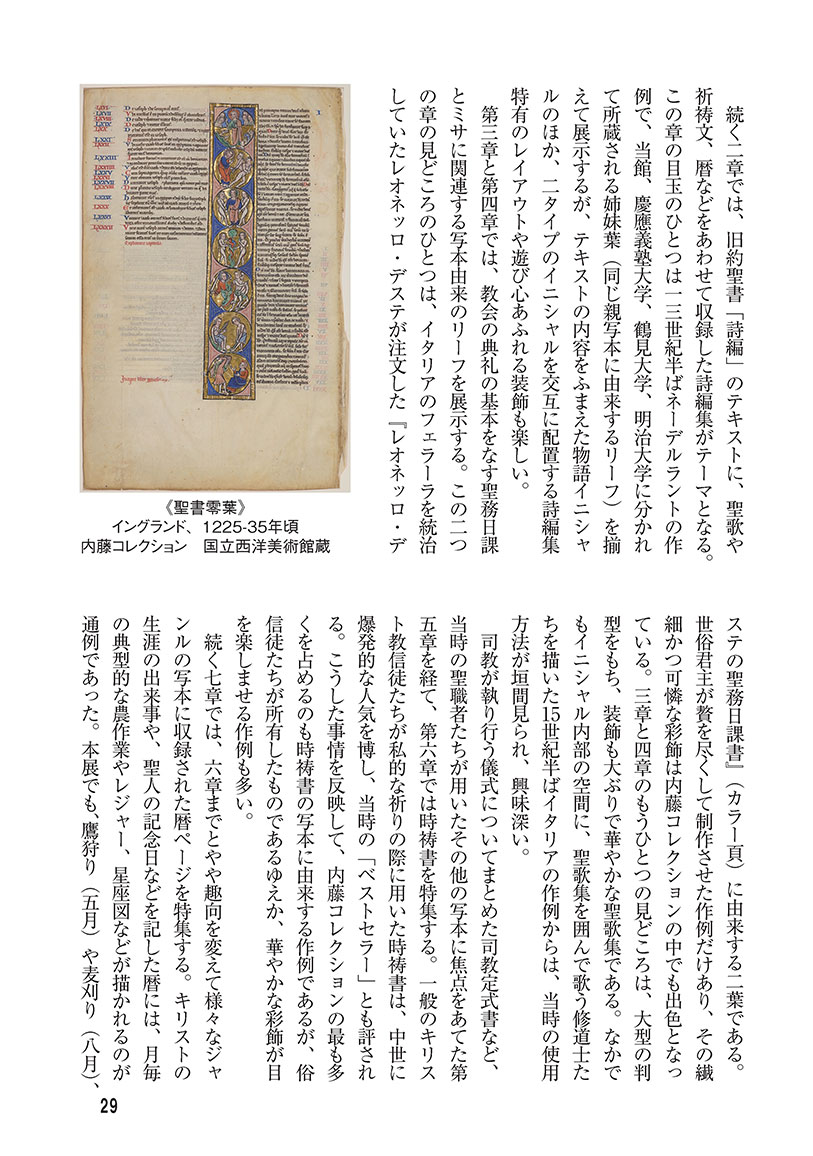 続く二章では、旧約聖書「詩編」のテキストに、聖歌や
祈祷文、暦などをあわせて収録した詩編集がテーマとなる。
この章の目玉のひとつは一三世紀半ばネーデルラントの作
例で、当館、慶應義塾大学、鶴見大学、明治大学に分かれ
て所蔵される姉妹葉（同じ親写本に由来するリーフ）を揃
えて展示するが、テキストの内容をふまえた物語イニシャ
ルのほか、二タイプのイニシャルを交互に配置する詩編集
特有のレイアウトや遊び心あふれる装飾も楽しい。
第三章と第四章では、教会の典礼の基本をなす聖務日課
とミサに関連する写本由来のリーフを展示する。この二つ
の章の見どころのひとつは、イタリアのフェラーラを統治
していたレオネッロ・デステが注文した『レオネッロ・デ
《聖書零葉》
イングランド、1225-35年頃
内藤コレクション　国立西洋美術館蔵
ステの聖務日課書』（カラー頁）に由来する二葉である。
世俗君主が贅を尽くして制作させた作例だけあり、その繊
細かつ可憐な彩飾は内藤コレクションの中でも出色となっ
ている。三章と四章のもうひとつの見どころは、大型の判
型をもち、装飾も大ぶりで華やかな聖歌集である。なかで
もイニシャル内部の空間に、聖歌集を囲んで歌う修道士た
ちを描いた15世紀半ばイタリアの作例からは、当時の使用
方法が垣間見られ、興味深い。
司教が執り行う儀式についてまとめた司教定式書など、
当時の聖職者たちが用いたその他の写本に焦点をあてた第
五章を経て、第六章では時祷書を特集する。一般のキリス
ト教信徒たちが私的な祈りの際に用いた時祷書は、中世に
爆発的な人気を博し、当時の「ベストセラー」とも評され
る。こうした事情を反映して、内藤コレクションの最も多
くを占めるのも時祷書の写本に由来する作例であるが、俗
信徒たちが所有したものであるゆえか、華やかな彩飾が目
を楽しませる作例も多い。
続く七章では、六章までとやや趣向を変えて様々なジャ
ンルの写本に収録された暦ページを特集する。キリストの
生涯の出来事や、聖人の記念日などを記した暦には、月毎
の典型的な農作業やレジャー、星座図などが描かれるのが
通例であった。本展でも、鷹狩り（五月）や麦刈り（八月）、
29